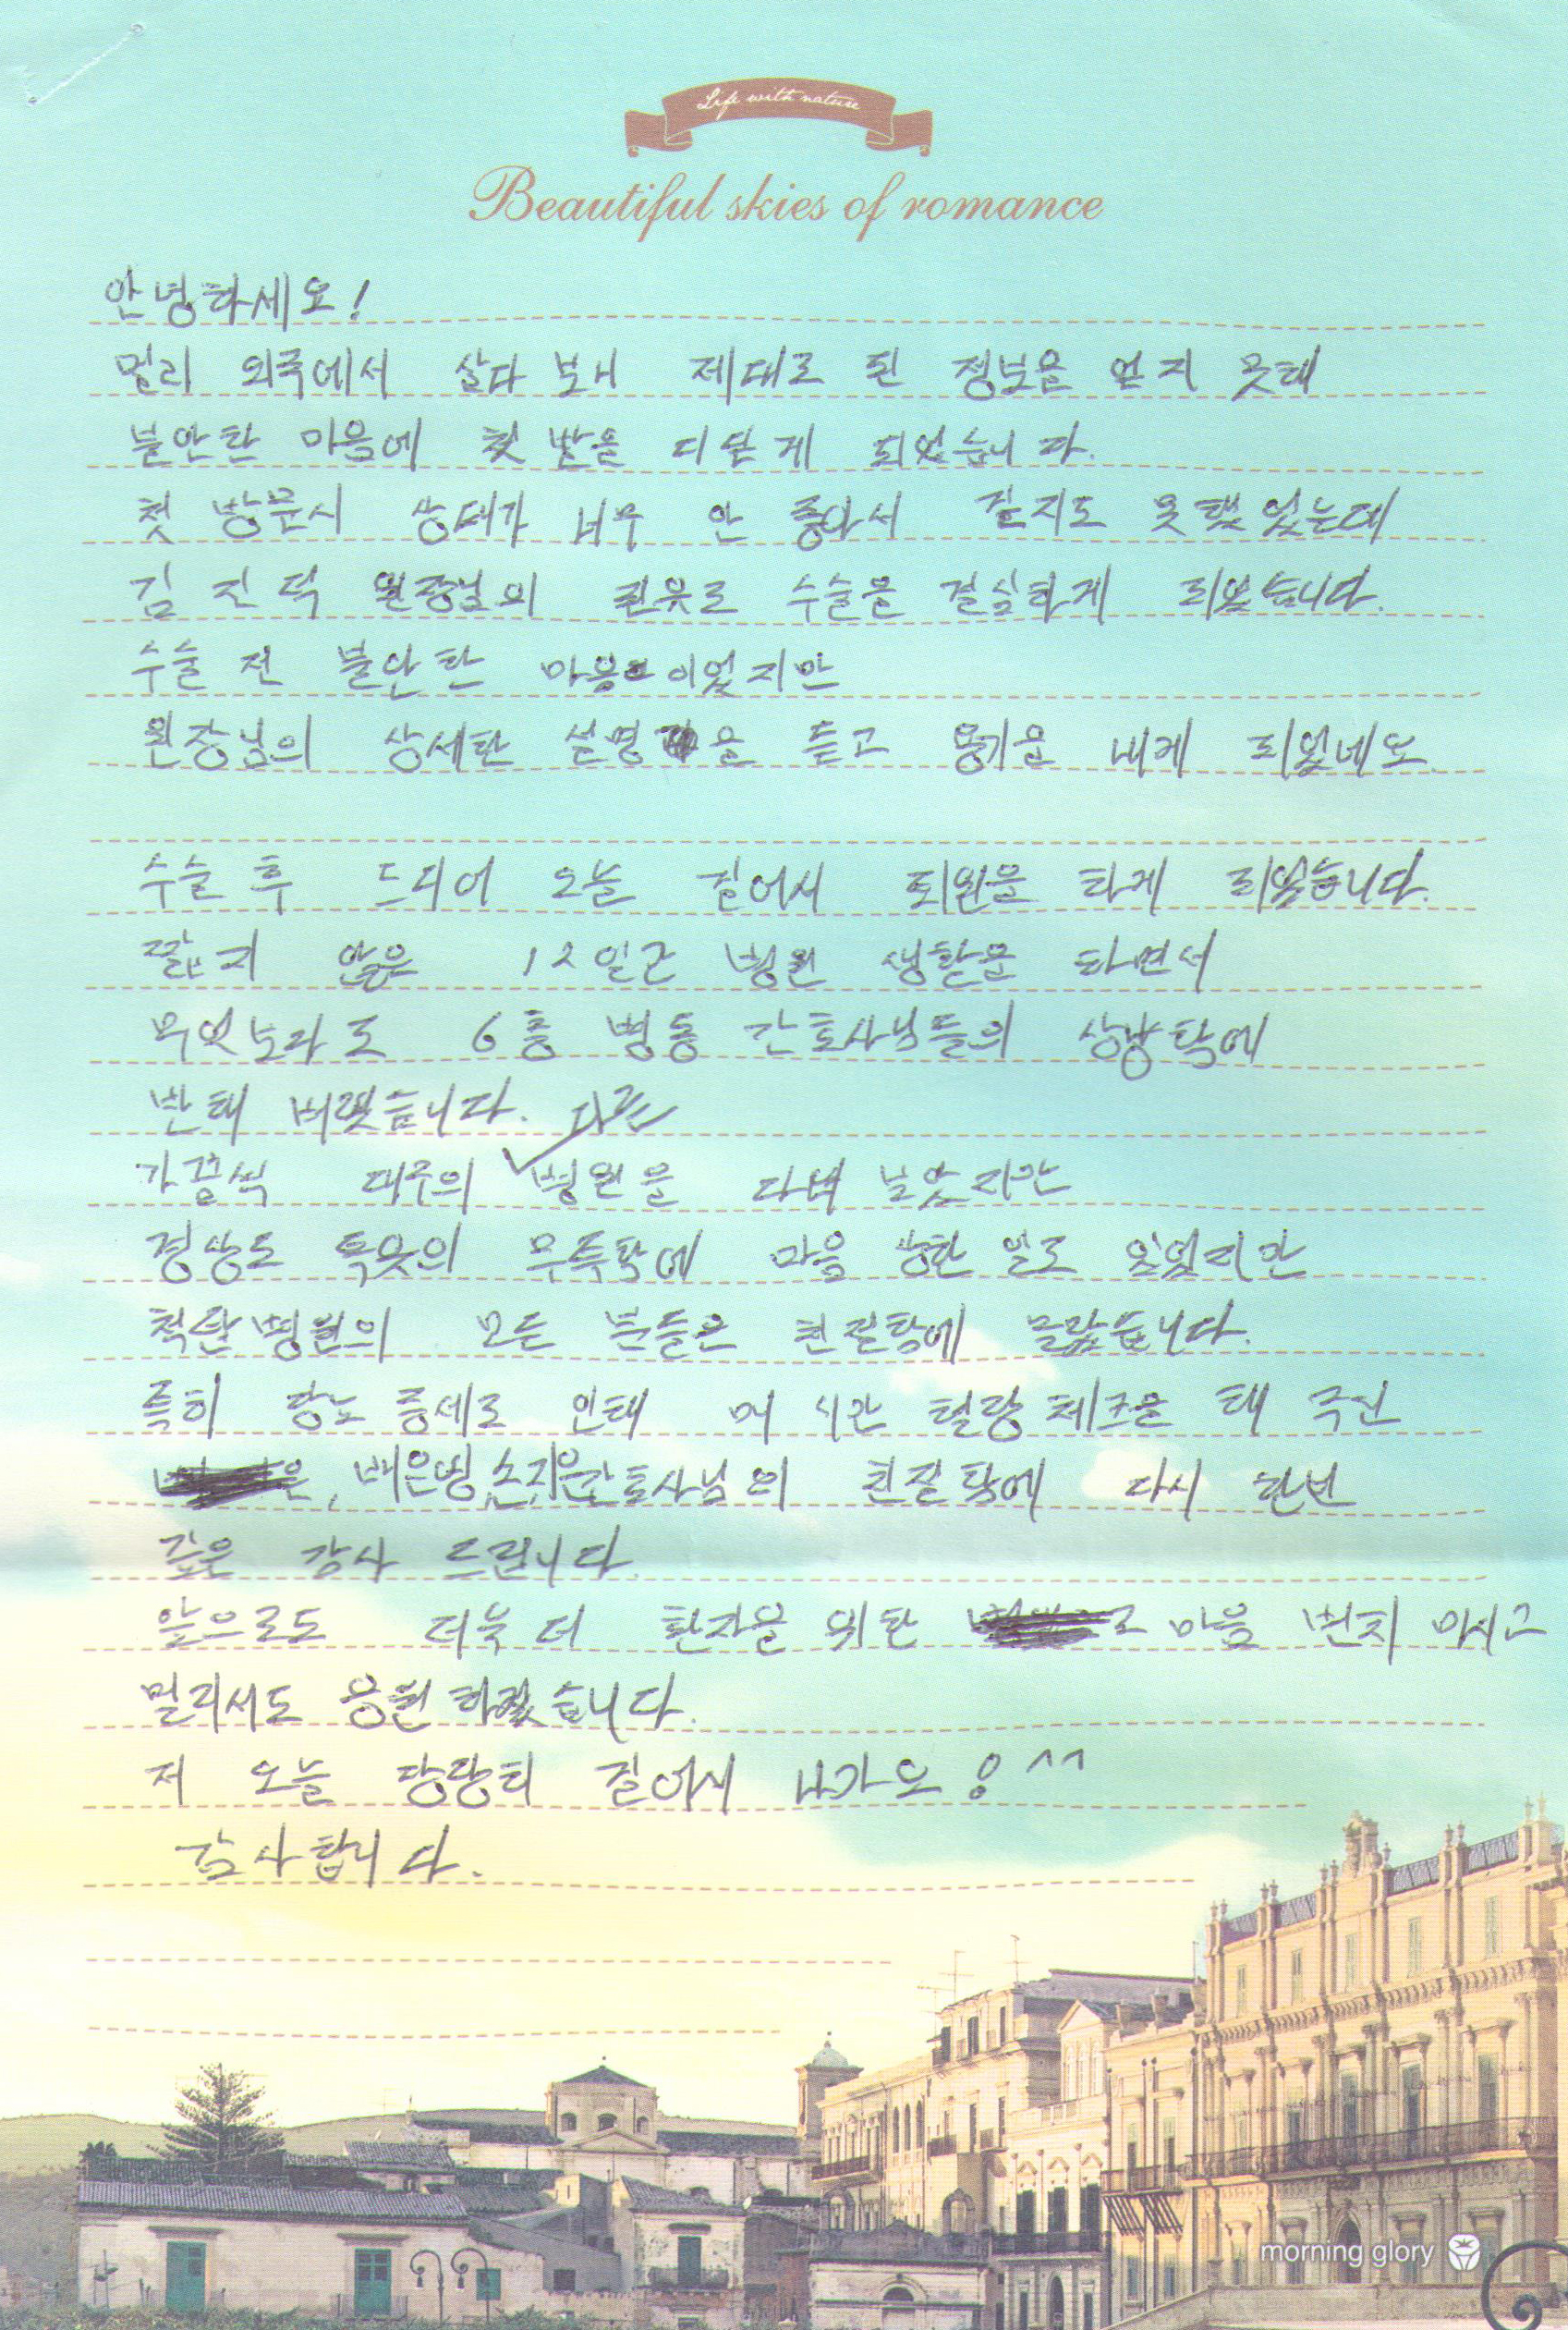 Life with nature
Beautiful skies of romance
안녕하세요!
멀리 외국에서 살다 보니 제대로 된 정보을 얻지 못해
불안한 마음에 첫 발을 디딛게 되었습니다.
첫 방문시 상태가 너무 안 좋아서 걷지도 못했었는데
김진덕 원장님의 권유로 수술을 결심하게 되었습니다.
수술 전 불안한 마음이었지만
원장님의 상세한 설명을 듣고 용기을 내게 되었네요.
수술 후 드디어 오늘 걸어서 퇴원을 하게 되었습니다.
짧지 않은 12일간 병원 생활을 하면서
무엇보라도 6층 병동 간호사님들의 상냥함에
반해 버렸습니다.
다른
가끔씩 대구의 병원을 다녀 보았지만
경상도 특유의 무뚝함에 마음 상한 일도 있었지만
척탑병원의 모든 분들은 친절함에 놀랐습니다.
특히 당뇨 증세로 인해 매 시간 혈당 체크을 해 주신
배은영, 손지은간호사님의 친절함에 다시 한번
깊은 감사 드립니다.
앞으로도 더욱 더 환자을 위한 마음 변치 마시고
멀리서도 응원하겠습니다.
저 오늘 당당히 걸어서 나가요! ^^
감사합니다.
morning glory